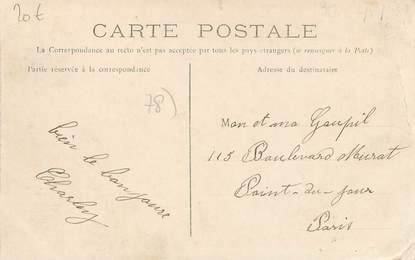 20t
CARTE POSTALE
La Correspondance au recto n'est pas acceptée par tous les pays étrangers (se renseigner à la Poste)
Partie réservée à la correspondance
Adresse du destinataire
78)
bien le bonjoure
Charley
Mon et ma Goupil
115 Boulevard Murat
Point-du-jour
Paris